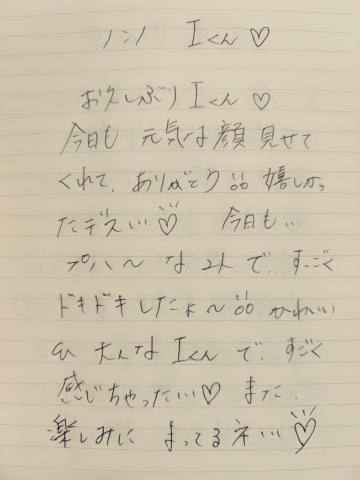 ノンノ Iくん♡
お久しぶりIくん♡
今日も 元気な顔見せて
くれて、ありがとう!!嬉しかっ
たデス!!!♡ 今日も...
プハ〜な2人で、すっごく
ドキドキしたよ〜!! かわいい
大たんなIくんで、すごく
感じちゃったい♡ また、
楽しみに まってるネ!!!♡